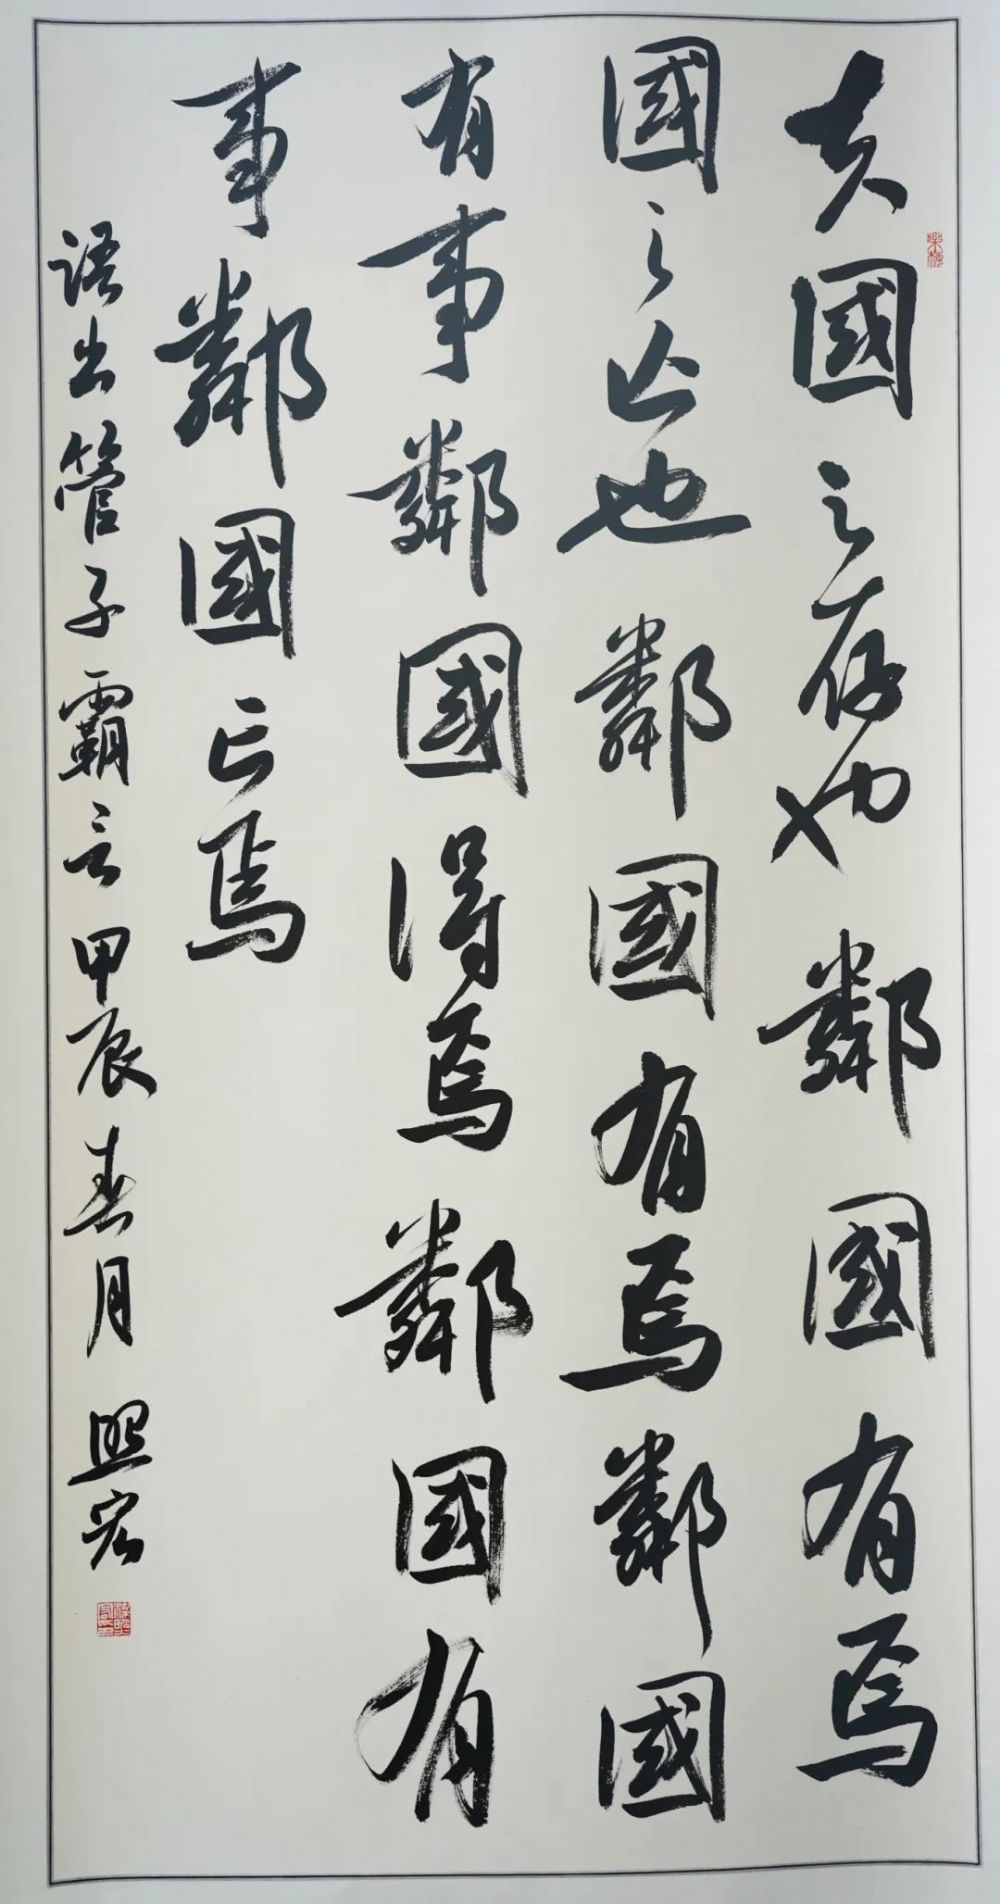 夫國之存也鄰國有焉
國之亡也鄰國有焉鄰國
有事鄰國得焉鄰國有
事鄰國亡焉
语出管子霸言甲辰春月照宏